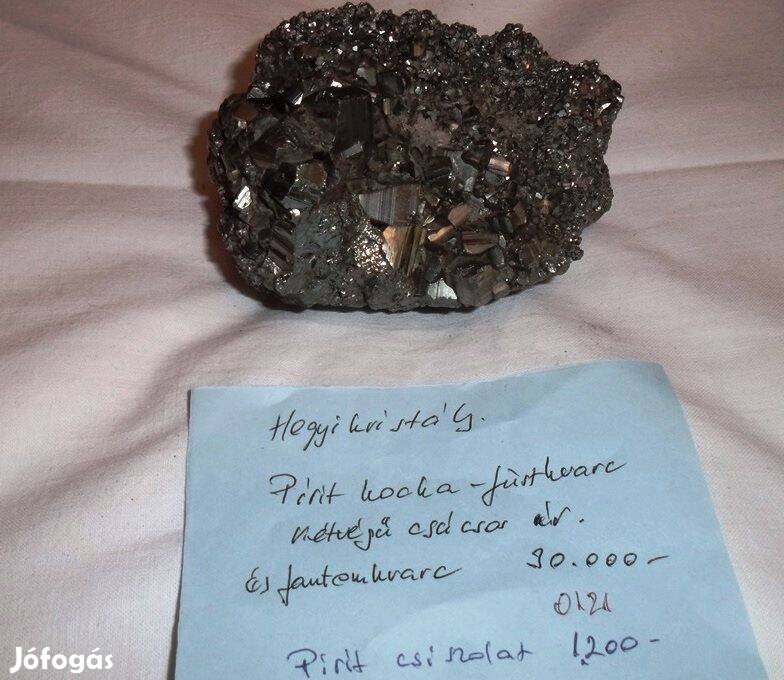 Hegyikristály.
Pirit kocka - füstkvarc
kétvégű csúcsos ár.
és fantomkvarc 30.000-
0121
Pirit csiszolat 1.200-
Jófogás